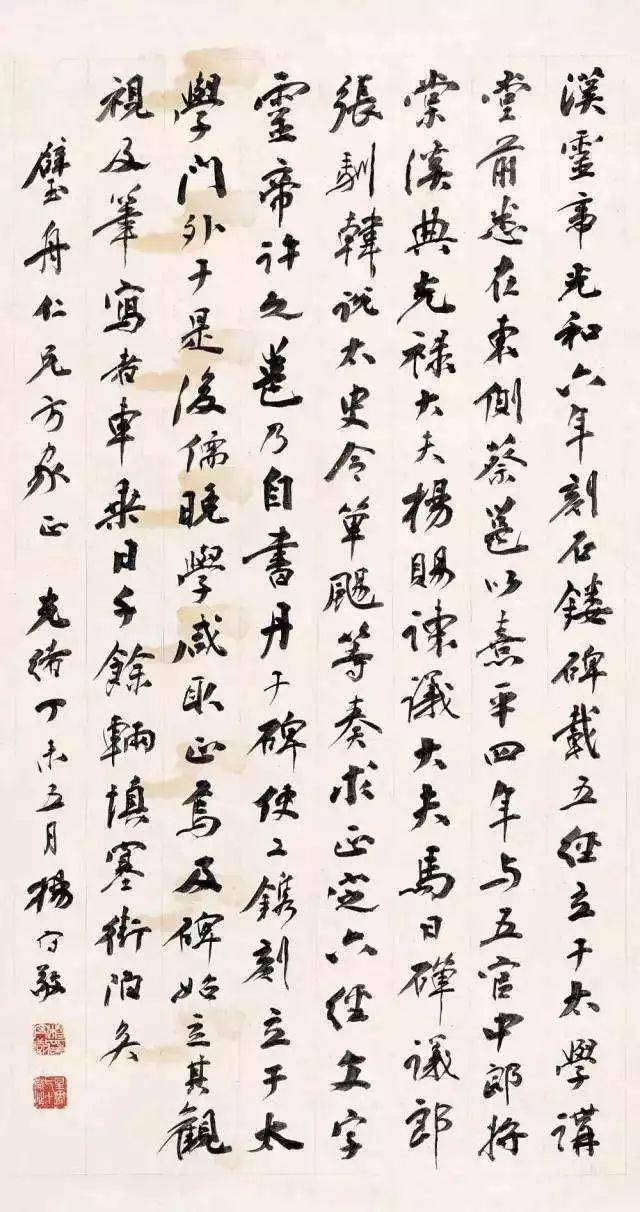 漢靈帝光和六年刻石鏤碑載五經立于太學講
堂前悉在東側蔡邕以熹平四年與五官中郎將
棠溪典光祿大夫楊賜諫議大夫馬日磾議郎
張馴韓說太史令單颺等奏求正定六經文字
靈帝許之邕乃自書丹于碑使工鐫刻立于太
學門外于是後儒晚學咸取正焉及碑始立其觀
視及筆寫者車乘日千餘輛填塞街陌矣
璧舟仁兄方家正 光緒丁未五月楊守敬